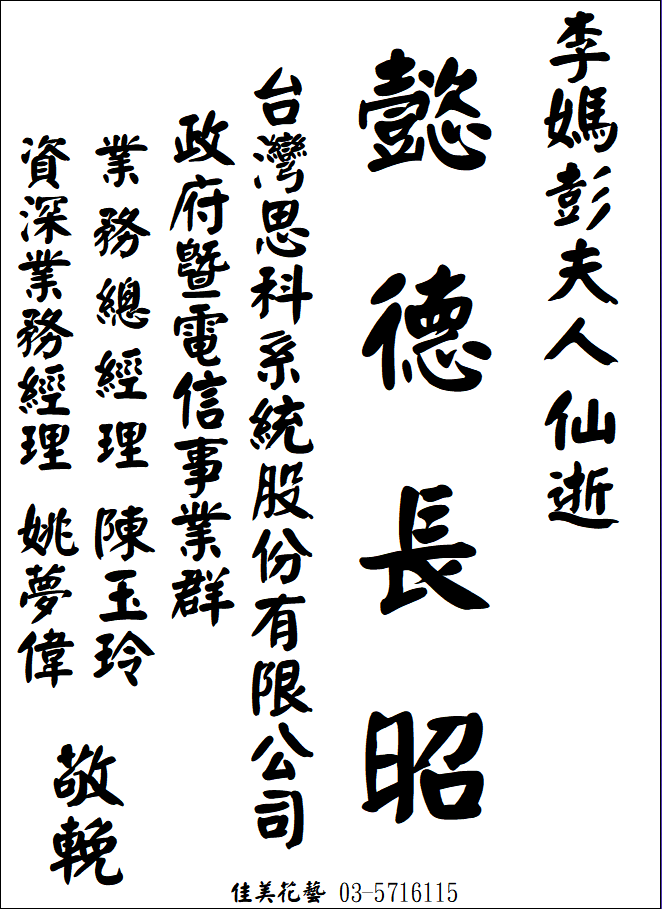 李媽彭夫人仙逝
懿德長昭
台灣思科系統股份有限公司
政府暨電信事業群
業務總經理 陳玉玲
資深業務經理 姚夢偉
敬輓
佳美花藝 03-5716115